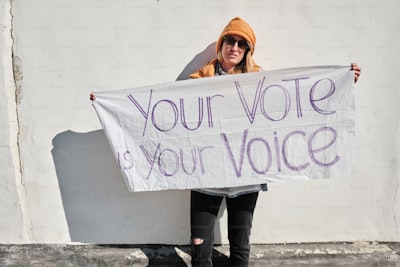 YOUR VOTE
is YOUR VOiCE